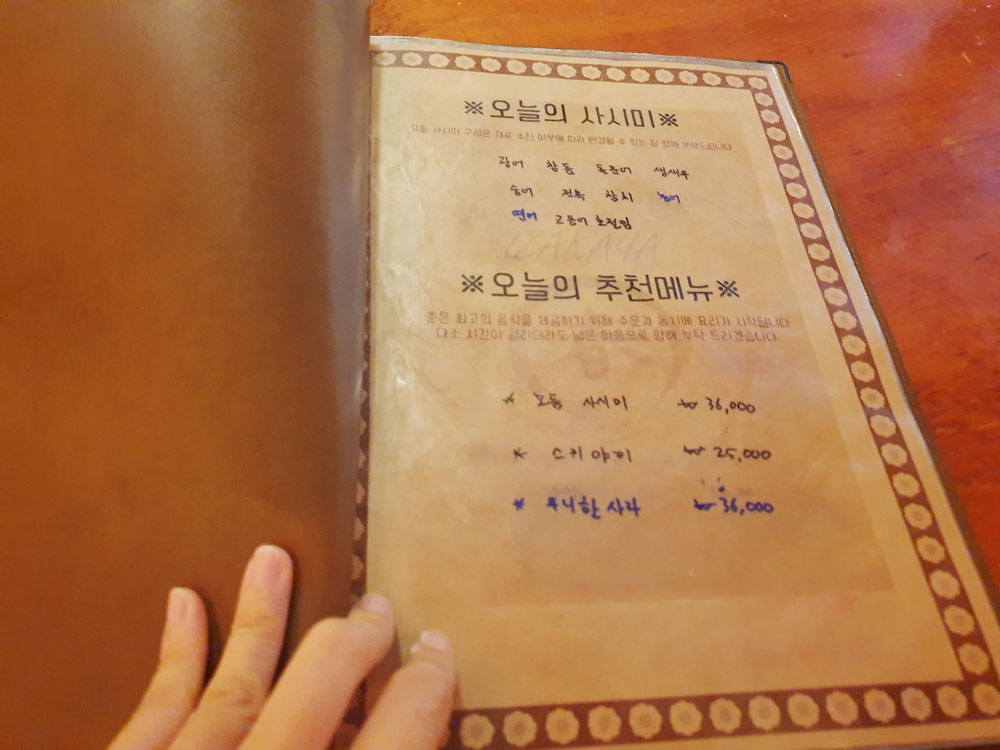 ※오늘의 사시미※
모듬 사시미 구성은 재료 소진 여부에 따라 변경될 수 있는 점 양해 부탁드립니다
광어 참돔 생새우
숭어 전복 농어
연어 고등어초절임
※오늘의 추천메뉴※
준은 최고의 음식을 제공하기 위해 주문과 동시에 요리가 시작됩니다
다소 시간이 걸리더라도 넓은 마음으로 양해 부탁 드리겠습니다.
* 모듬 사시미 ₩ 36,000
* 스키야끼 ₩ 25,000
* 우니한사라 ₩ 36,000